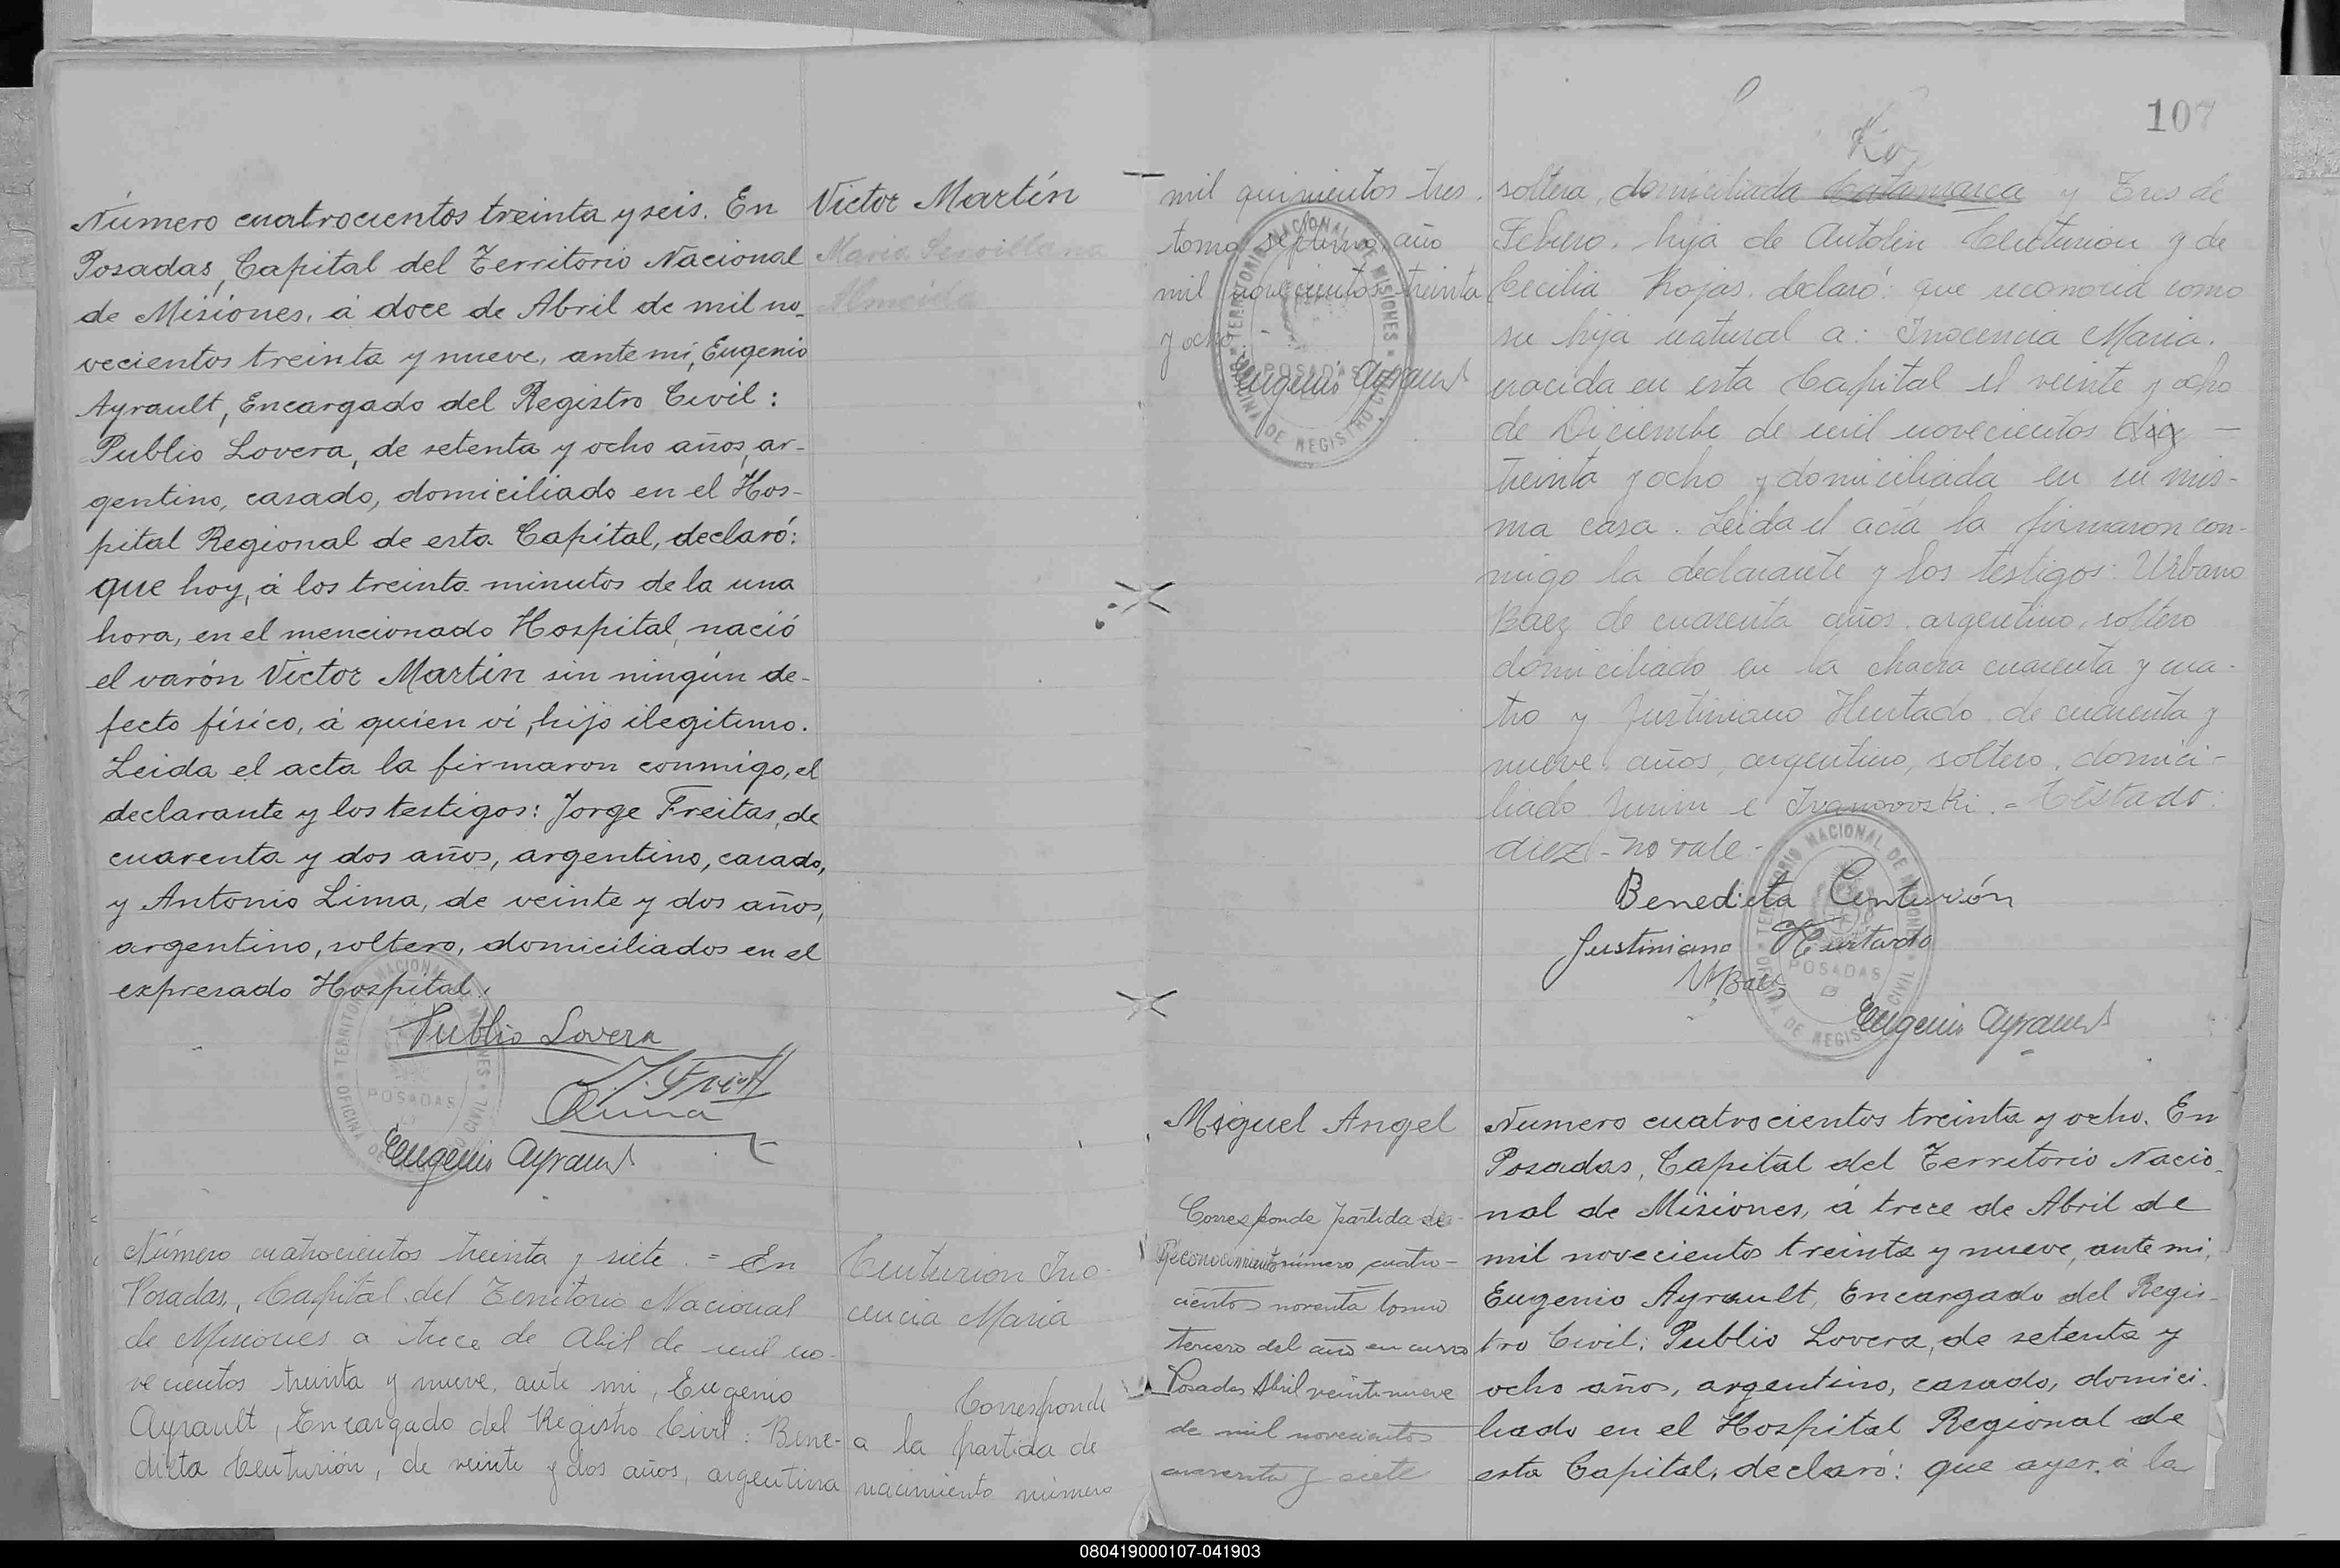 Número cuatrocientos treinta y seis. En
Posadas, Capital del Territorio Nacional
de Misiones, á doce de Abril de mil no-
vecientos treinta y nueve, ante mí, Eugenio
Ayrault, Encargado del Registro Civil:
Publio Lovera, de setenta y ocho años, ar-
gentino, casado, domiciliado en el Hos-
pital Regional de esta Capital, declaró:
que hoy, á los treinta minutos de la una
hora, en el mencionado Hospital, nació
el varón Victor Martín sin ningún de-
fecto físico, á quien ví, hijo ilegitimo.
Leida el acta la firmaron conmigo, el
declarante y los testigos: Jorge Freitas, de
cuarenta y dos años, argentino, casado,
y Antonio Lima, de veinte y dos años,
argentino, soltero, domiciliados en el
expresado Hospital.
Publio Lovera
Lima
Eugenio Ayrault
Victor Martín
Maria Servillana
Almeida
Número cuatrocientos treinta y siete. = En
Posadas, Capital del Territorio Nacional
de Misiones a trece de Abril de mil no-
vecientos treinta y nueve, ante mi, Eugenio
Ayrault, Encargado del Registro Civil: Bene-
dicta Centurión, de veinte y dos años, argentina
Centurion Ino-
cencia Maria
Corresponde
a la partida de
nacimiento número
107
mil quinientos tres.
tomo séptimo, año
mil novecientos treinta
y ocho.
Eugenio Ayrault
soltera, domiciliada Catamarca y Tres de
Febrero, hija de Autolin Centurion y de
Cecilia Rojas. declaró: que reconocia como
su hija natural a: Inocencia Maria.
nacida en esta Capital el veinte y ocho
de Diciembre de mil novecientos diez -
treinta y ocho y domiciliada en su mis-
ma casa. Leida el acta la firmaron con-
migo la declarante y los testigos: Urbano
Baez de cuarenta años, argentino, soltero
domiciliado en la chacra cuarenta y cua-
tro y Justiniano Hurtado, de cuarenta y
nueve años, argentino, soltero, domici-
liado Junin e Ivanovoski. = Téstado:
diez - no vale -
Benedicta Centurión
Justiniano Hurtado
U Baez
Eugenio Ayrault
OFICINA DE REGISTRO CIVIL TERRITORIO NACIONAL DE MISIONES
POSADAS
Miguel Angel
Corresponde partida de
Reconocimiento número cuatro-
cientos noventa tomo
tercero del año en curso
Posadas Abril veintinueve
de mil novecientos
cuarenta y siete
Numero cuatrocientos treinta y ocho. En
Posadas, Capital del Territorio Nacio-
nal de Misiones, á trece de Abril de
mil novecientos treinta y nueve, ante mi,
Eugenio Ayrault, Encargado del Regis-
tro Civil: Publio Lovera, de setenta y
ocho años, argentino, casado, domici-
liado en el Hospital Regional de
esta Capital, declaró: que ayer, á la
080419000107-041903